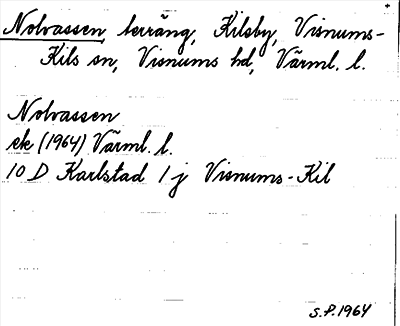 Nolvassen, terräng, Kilsby, Visnums-
Kils sn, Visnums hd, Värml. l.
Nolvassen
ek (1964) Värml. l.
10 D Karlstad 1 j Visnums-Kil
S.P. 1964